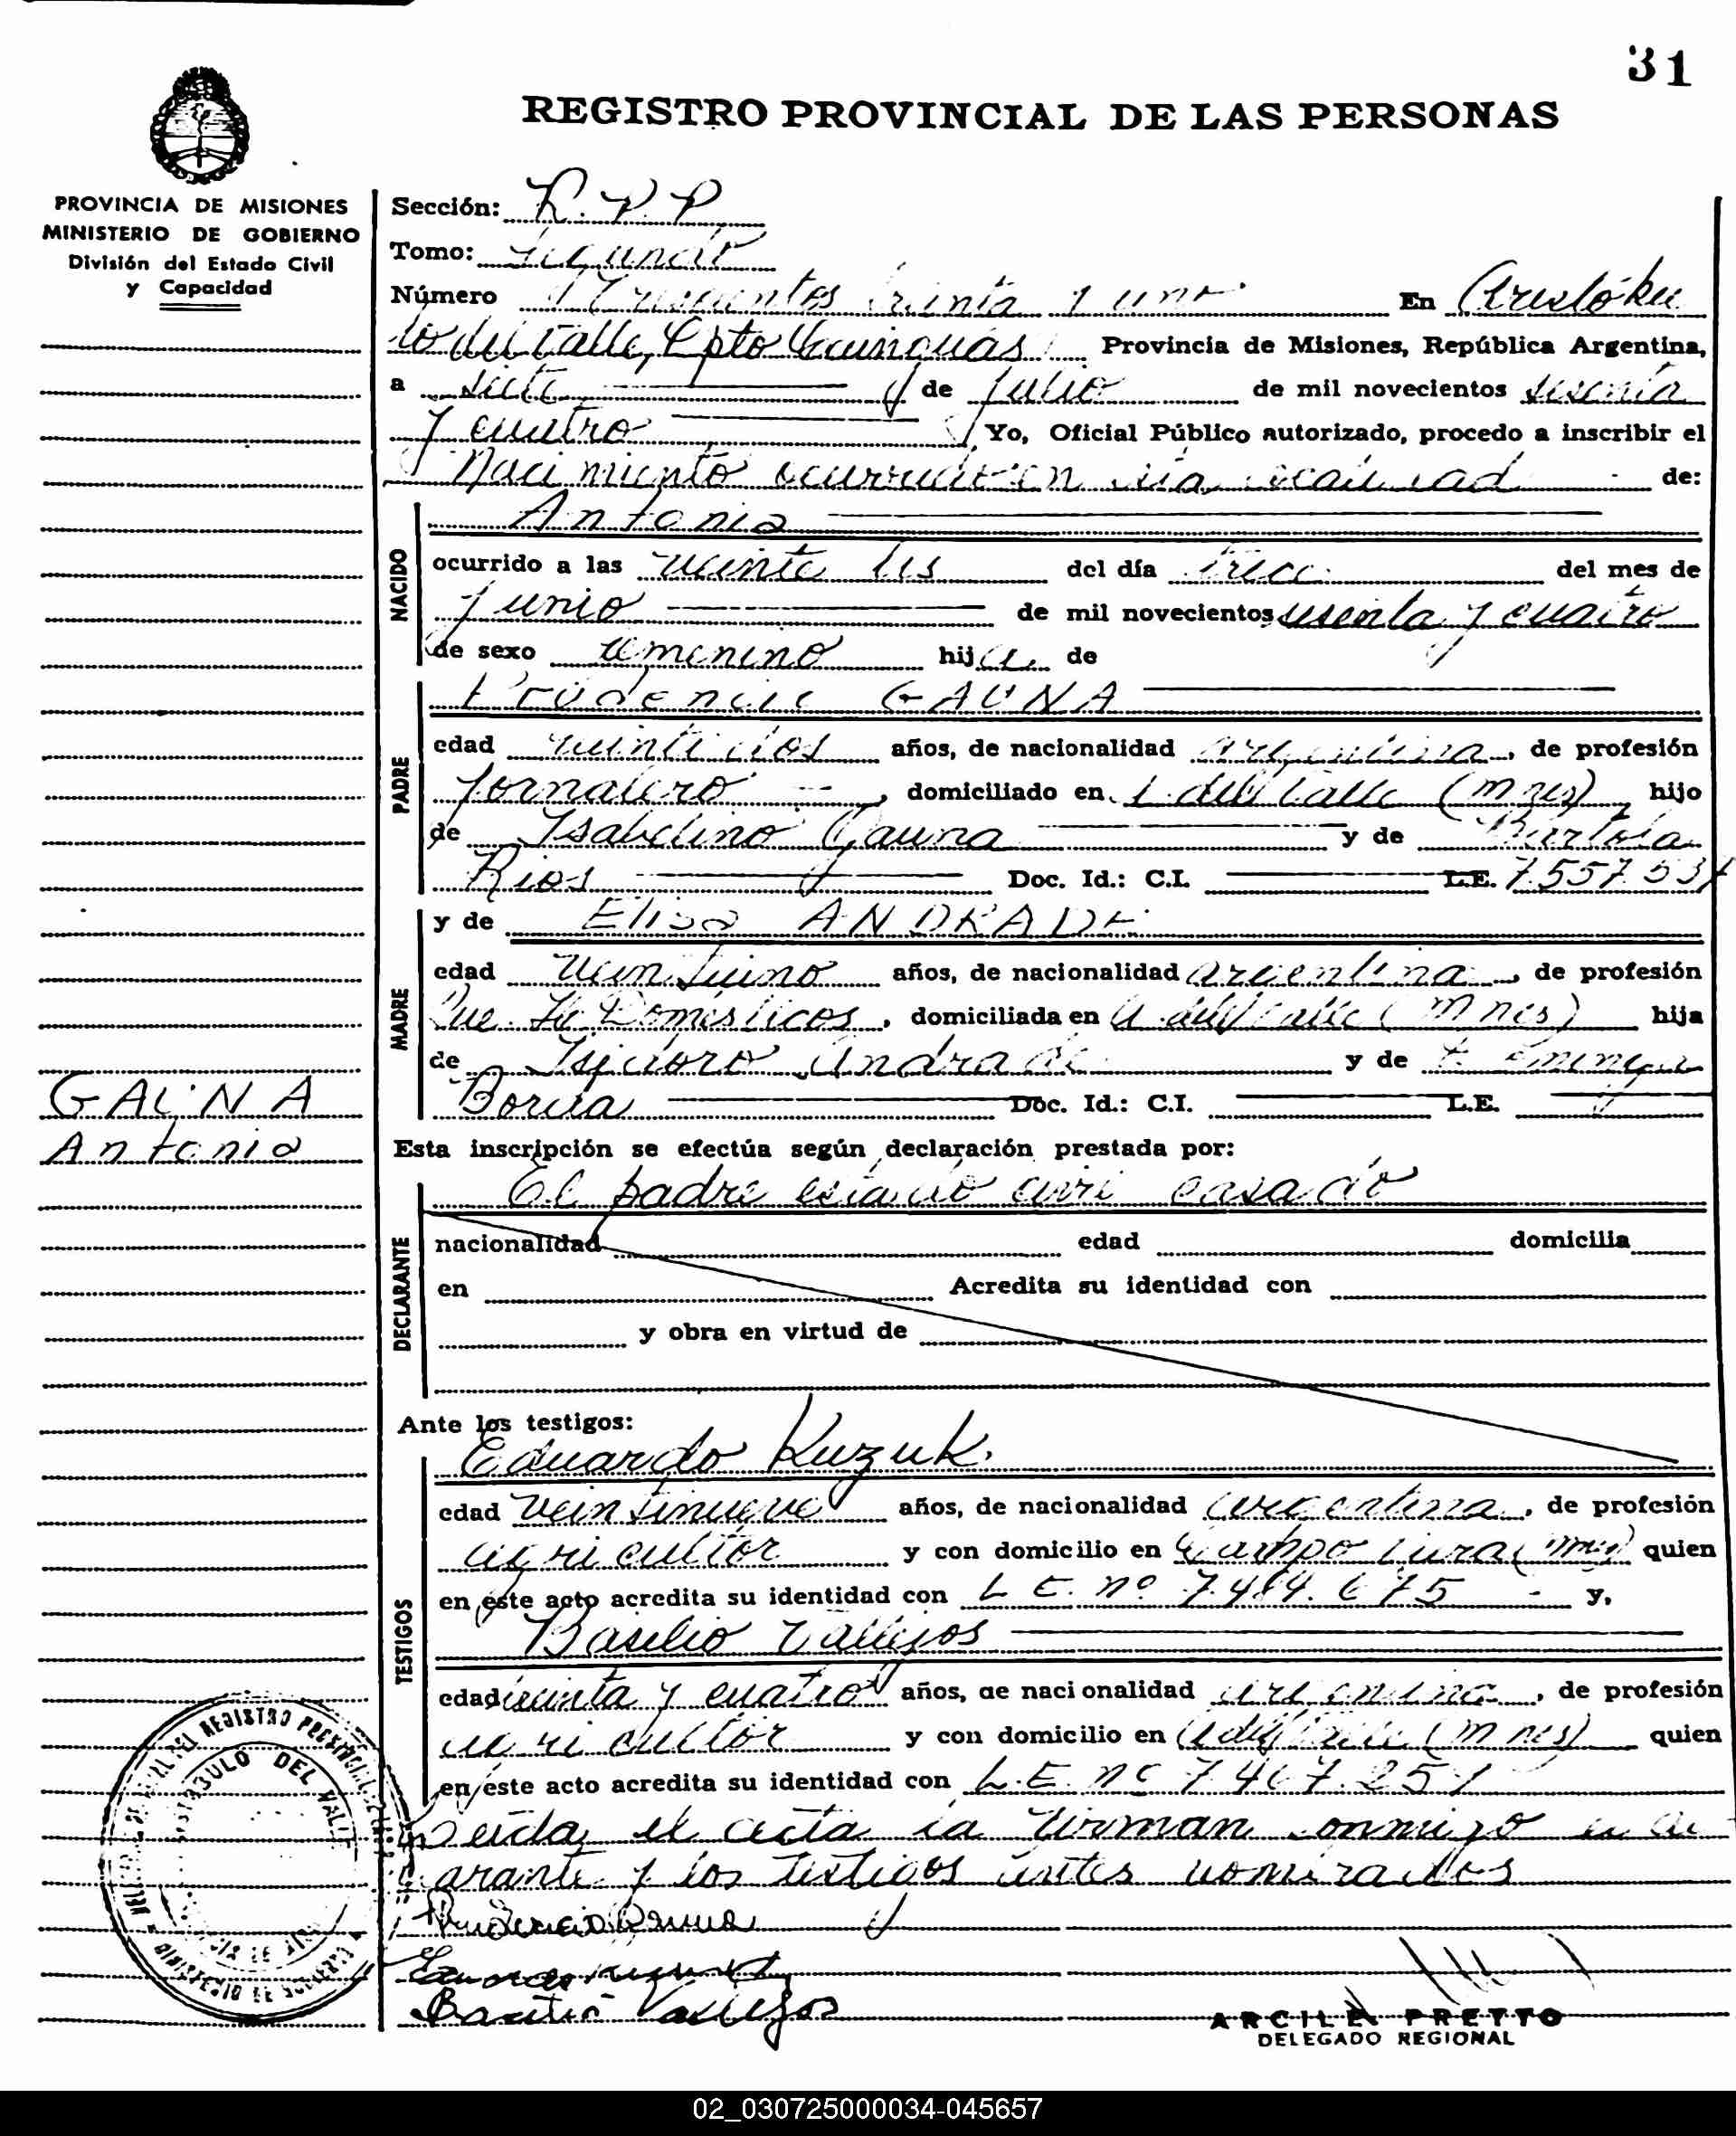 31
REGISTRO PROVINCIAL DE LAS PERSONAS
PROVINCIA DE MISIONES
MINISTERIO DE GOBIERNO
División del Estado Civil
y Capacidad
Sección: R.P.P
Tomo: Segundo
Número Trescientos treinta y uno En Aristóbu
lo del Valle, Dpto Cainguás Provincia de Misiones, República Argentina,
a siete de julio de mil novecientos sesenta
y cuatro Yo, Oficial Público autorizado, procedo a inscribir el
Nacimiento ocurrido en esta localidad de:
Antonia
NACIDO
ocurrido a las veinte hs del día trece del mes de
junio de mil novecientos sesenta y cuatro
de sexo femenino hija de
Prudencio GAUNA
PADRE
edad veintidos años, de nacionalidad argentina, de profesión
jornalero, domiciliado en A. del Valle (Mnes) hijo
de Isabelino Gauna y de Bartola
Rios Doc. Id.: C.I. L.E. 7.557.537
y de Elisa ANDRADE
MADRE
edad veintiuno años, de nacionalidad argentina, de profesión
Que H. Domésticos, domiciliada en A. del Valle (Mnes) hija
de Isidoro Andrade y de
Doc. Id.: C.I. L.E.
GAUNA
Antonia
Esta inscripción se efectúa según declaración prestada por:
El padre estado civil casado
DECLARANTE
nacionalidad edad domicilia
en Acredita su identidad con
y obra en virtud de
Ante los testigos:
Eduardo Kuzuk
TESTIGOS
edad veintinueve años, de nacionalidad argentina, de profesión
agricultor y con domicilio en Campo (Mnes) quien
en este acto acredita su identidad con L E. nº 7.484.675 y,
Basilio Vallejos
edad treinta y cuatro años, de nacionalidad argentina, de profesión
agricultor y con domicilio en A. del Valle (Mnes) quien
en este acto acredita su identidad con L.E. nº 7.467.251
Leida el acta la firman conmigo el de
clarante y los testigos antes nombrados
Prudencio Gauna
Eduardo Kuzuk
Basilio Vallejos
ARCILE PRETTO
DELEGADO REGIONAL
REGISTRO PROVINCIAL
ARISTOBULO DEL VALLE
MINISTERIO DE GOBIERNO
02_030725000034-045657